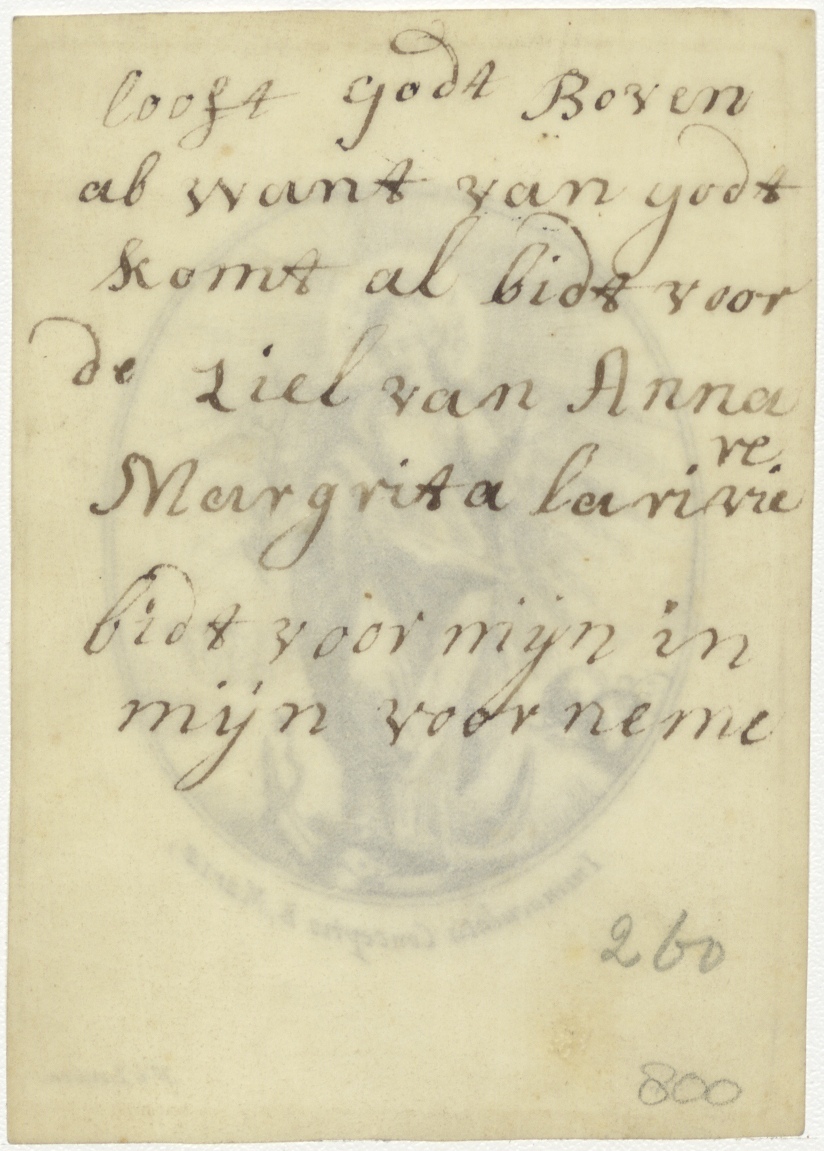 looft godt Boven
ab want van godt
komt al bidt voor
de Ziel van Anna
Margrita larivie
re
bidt voor mijn in
mijn voor neme
Immaculata Conceptio B. Maria
260
800